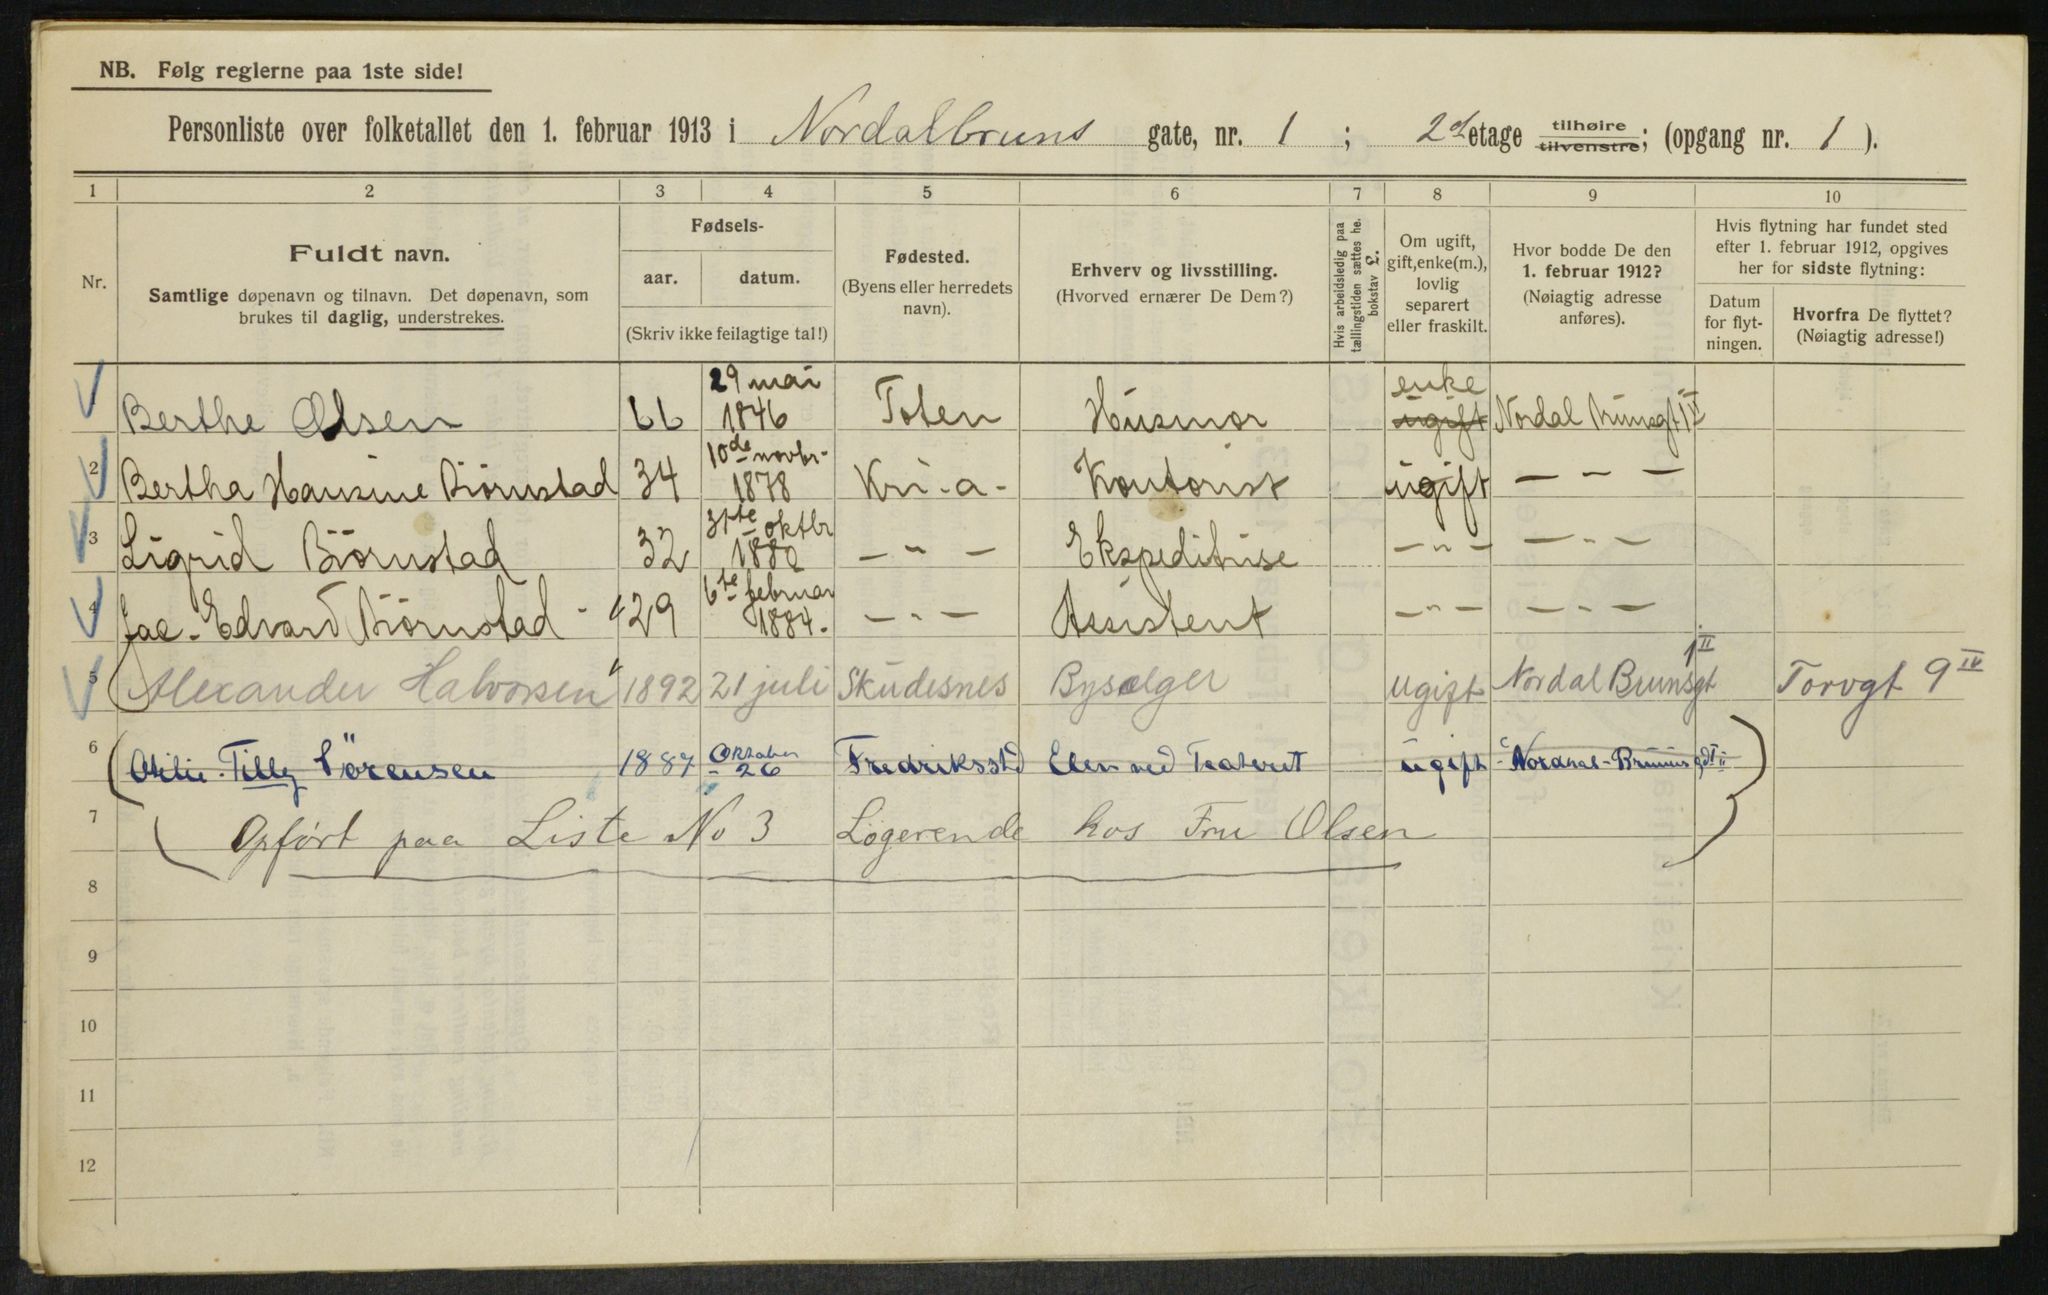 NB. Følg reglerne paa 1ste side!
Personliste over folketallet den 1. februar 1913 i Nordalbruns gate, nr. 1 ; 2det etage tilhøire tilvenstre; (opgang nr. 1 ).
1 2 3 4 5 6 7 8 9 10
Nr.
Fuldt navn.
Samtlige døpenavn og tilnavn. Det døpenavn, som
brukes til daglig, understrekes.
Fødsels-
aar. datum.
(Skriv ikke feilagtige tal!)
Fødested.
(Byens eller herredets
navn).
Erhverv og livsstilling.
(Hvorved ernærer De Dem?)
Hvis arbeidsledig paa
tællingstiden sættes he.
bokstav L.
Om ugift,
gift, enke(m.),
lovlig
separert
eller fraskilt.
Hvor bodde De den
1. februar 1912?
(Nøiagtig adresse
anføres).
Hvis flytning har fundet sted
efter 1. februar 1912, opgives
her for sidste flytning:
Datum
for flyt-
ningen.
Hvorfra De flyttet?
(Nøiagtig adresse!)
29 mai enke
Berthe Olsen 66 1846 Toten Husmor ugift Nordal Brunsgt 1 II
10de novbr-
2 Bertha Hansine Björnstad 34 1878 Kri-a- Kontorist ugift — " —
31te oktbr
3 Sigrid Björnstad 32 1880 — " — Ekspeditrise — " — — " —
6te februar
4 Jac- Edvard Björnstad - 29 1884. — " — Assistent — " — — " —
5 Alexander Halvorsen 1892 21 juli Skudesnes Bysælger ugift Nordal Brunsgt 1 II Torvgt 9 IV
6 Otilie-Tilly Sörensen 1887 Oktober 26 Fredriksstd Elev ved Teateret ugift Nordhal-Bruuns gdt 1 II
7 Opført paa Liste No 3 Logerende hos Fru Olsen
8
9
10
11
12